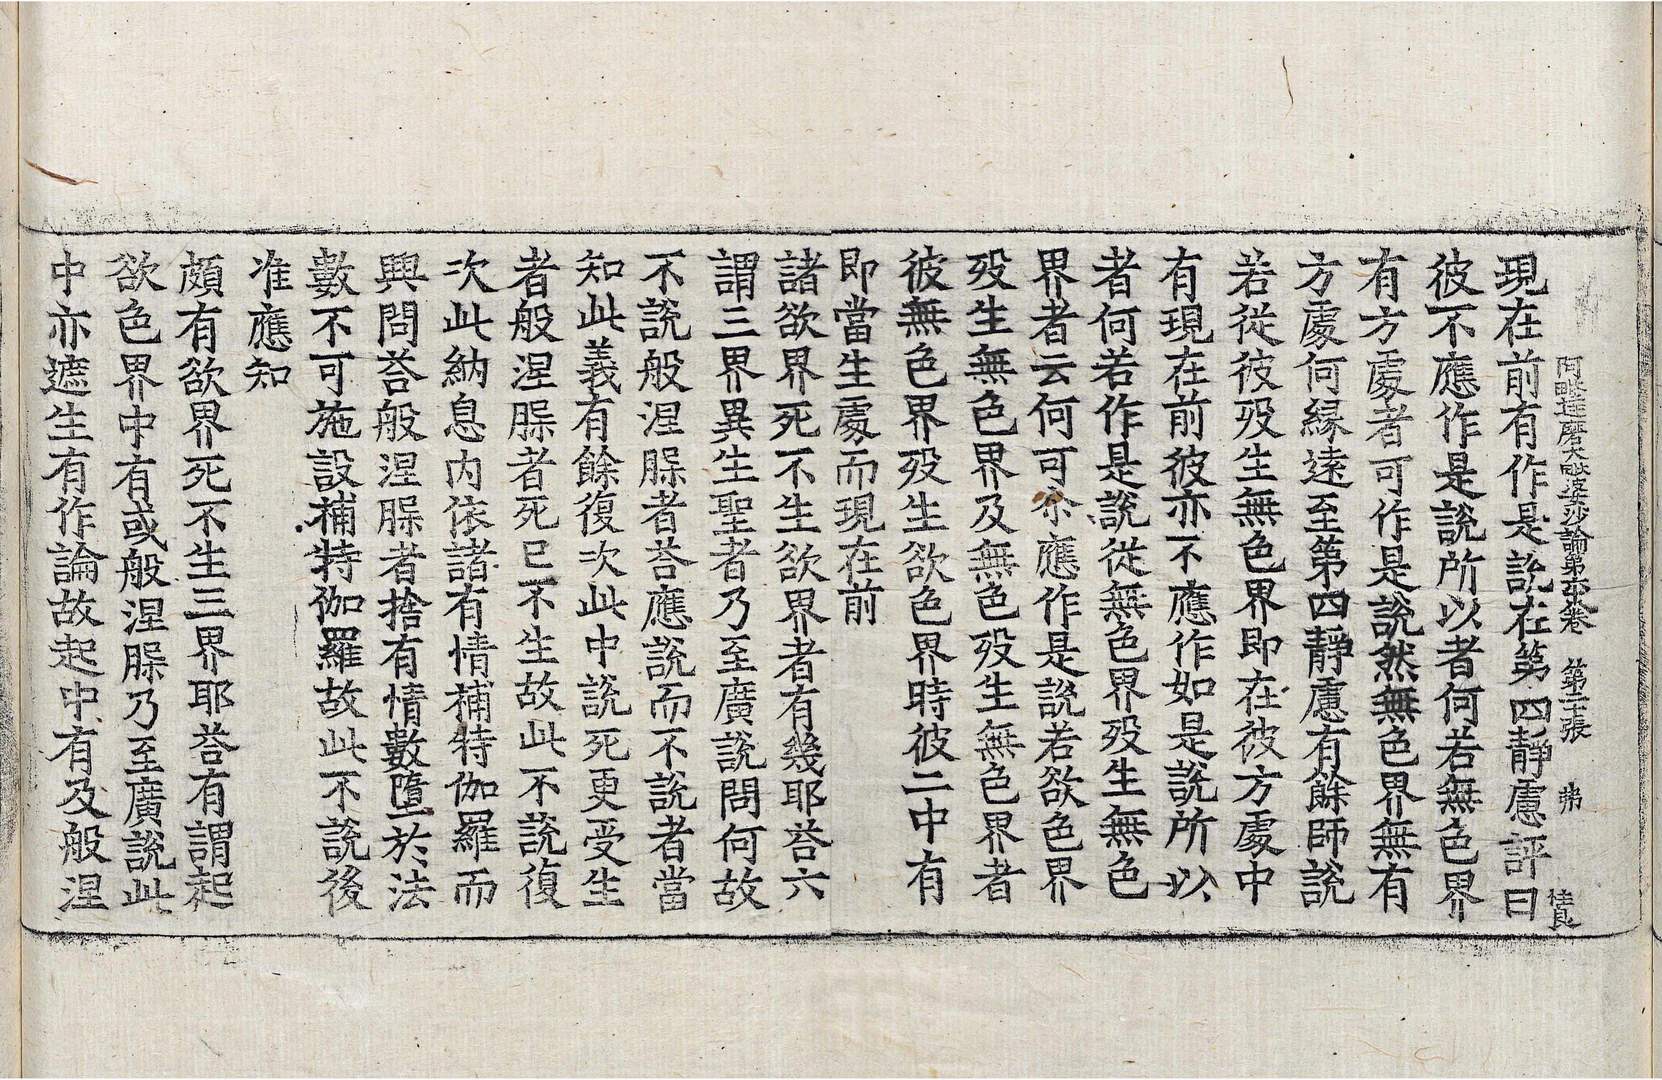 阿毗達磨大毗婆沙論第卷 第二十張 弗 桂良
現在前有作是說在第四靜慮評曰
彼不應作是說所以者何若無色界
有方處者可作是說然無色界無有
方處何緣遠至第四靜慮有餘師說
若從彼歿生無色界即在彼方處中
有現在前彼亦不應作如是說所以
者何若作是說從無色界歿生無色
界者云何可尒應作是說若欲色界
歿生無色界及無色歿生無色界者
彼無色界歿生欲色界時彼二中有
即當生處而現在前
諸欲界死不生欲界者有幾耶荅六
謂三界異生聖者乃至廣說問何故
不說般涅槃者荅應說而不說者當
知此義有餘復次此中說死更受生
者般涅槃者死已不生故此不說復
次此納息內依諸有情補特伽羅而
興問荅般涅槃者捨有情數墮於法
數不可施設補特伽羅故此不說後
准應知
頗有欲界死不生三界耶荅有謂起
欲色界中有或般涅槃乃至廣說此
中亦遮生有作論故起中有及般涅